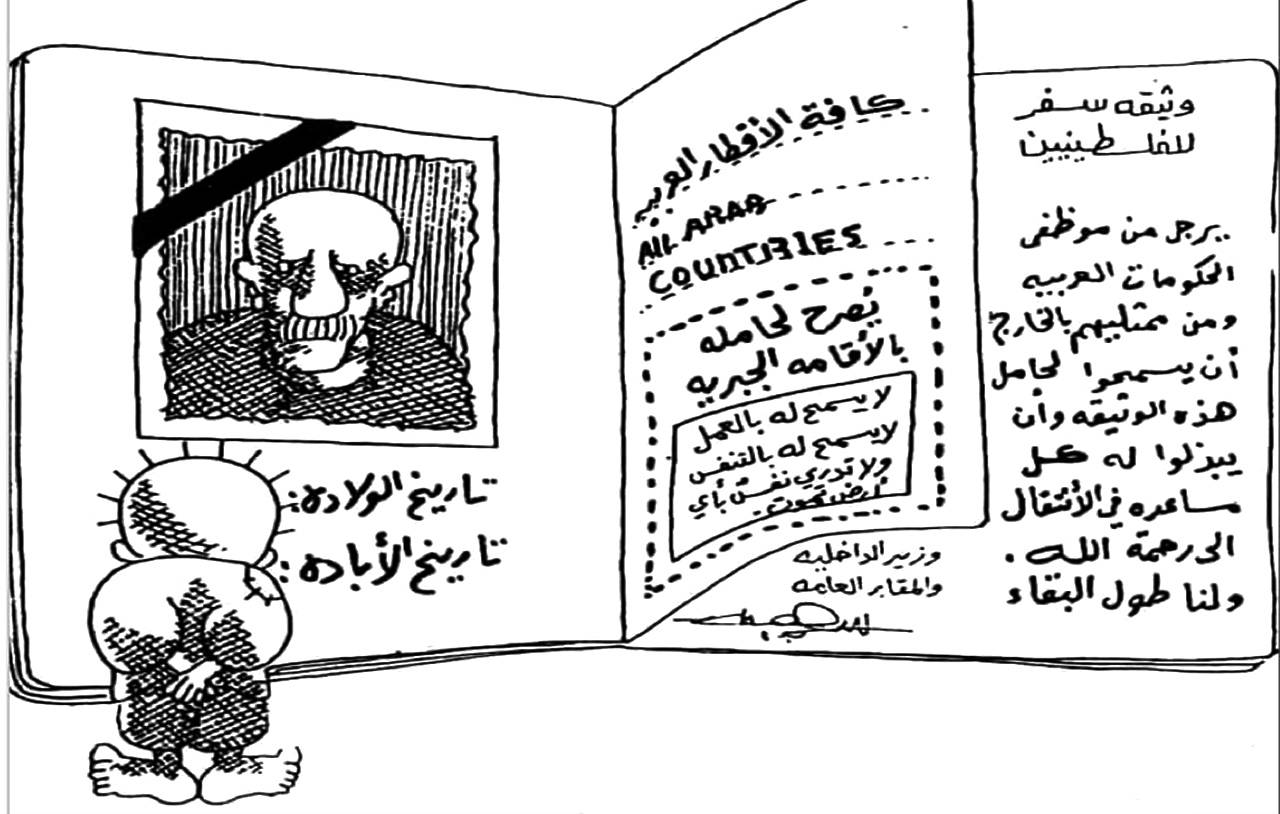 وثيقه سفر
للفلسطينيين
يرجى من موظفى
الحكومات العربيه
ومن ممثليهم بالخارج
أن يسمحوا لحامل
هذه الوثيقه وأن
يبذلوا له كل
مساعده في الأنتقال
الى رحمة الله .
ولنا طول البقاء
كافة الأقطار العربيه
ALL ARAB
COUNTRIES
يُصرح لحامله
بالأقامه الجبريه
لا يسمح له بالعمل
لا يسمح له بالتنفس
ولا تدري نفسٌ بأي
أرض تموت .
وزير الداخليه
والمقابر العامه
تاريخ الولادة :
تاريخ الأبادة :